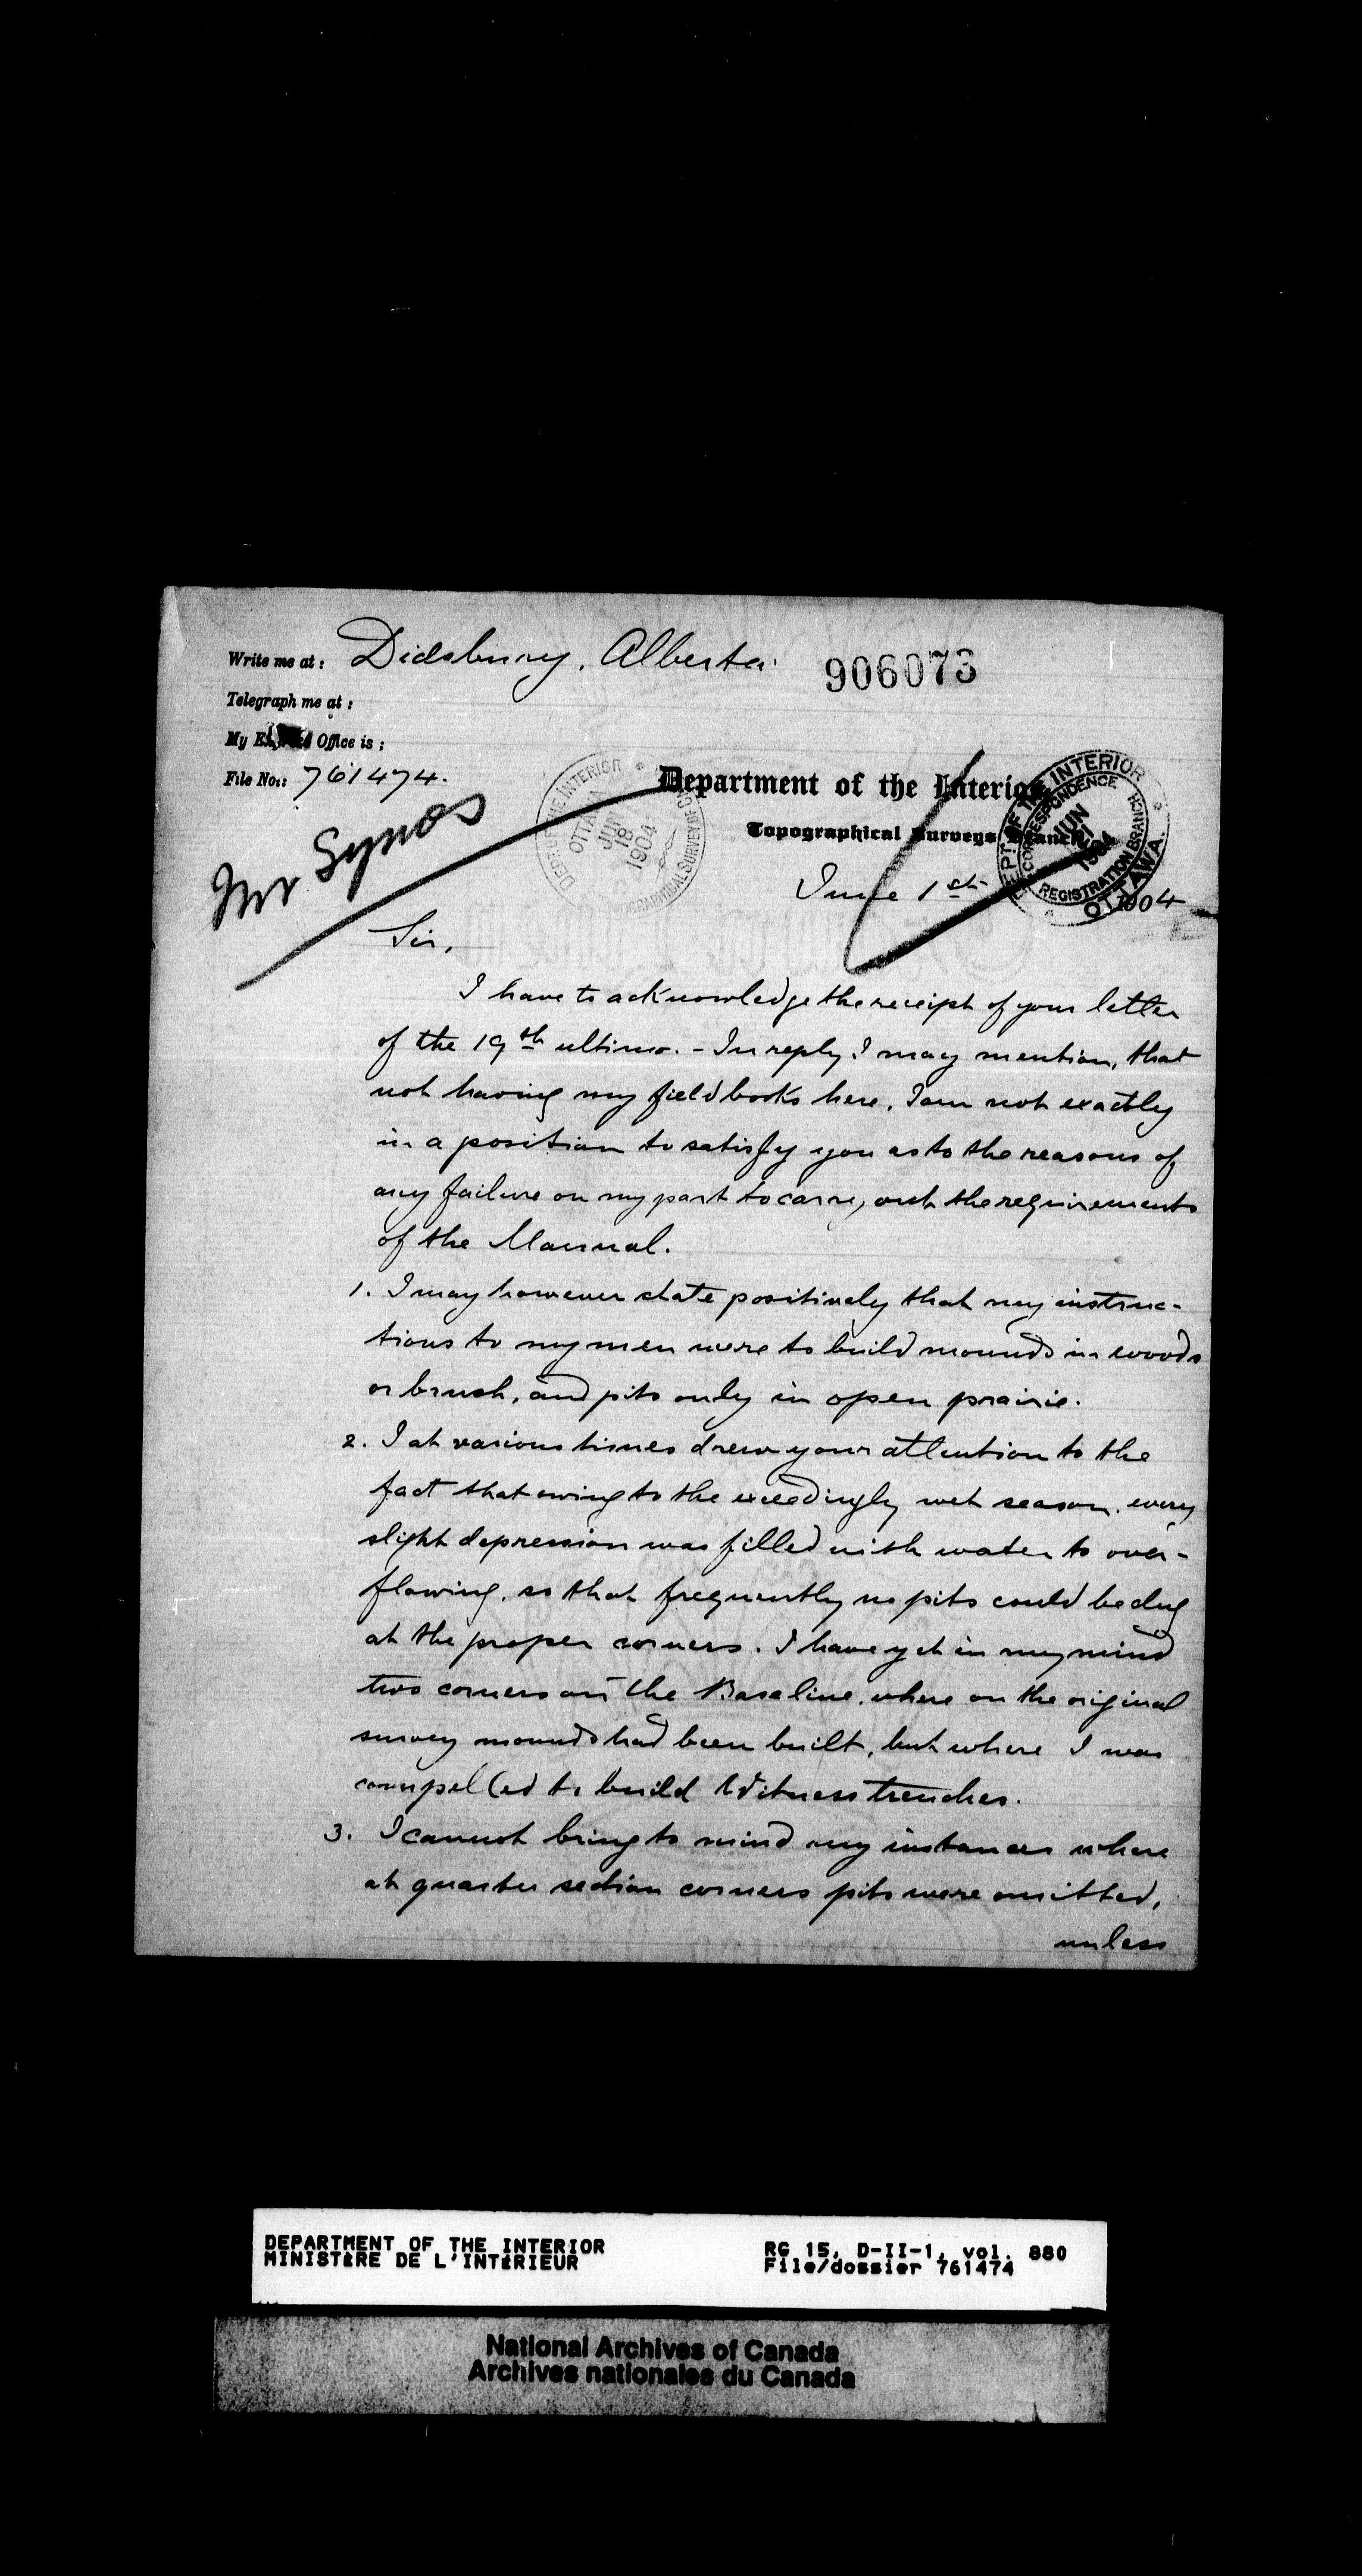 Write me at: Didsbury, Alberta.
906073
Telegraph me at:
My Office is:
File No.: 761474.
Department of the Interior
Topographical Surveys Branch
DEPT. OF THE INTERIOR
OTTAWA
JUN
18
1904
TOPOGRAPHICAL SURVEYS
DEPT. OF THE INTERIOR
CORRESPONDENCE
JUN
21
1904
REGISTRATION BRANCH
OTTAWA.
Mr Symes
June 1st 1904
Sir,
I have to acknowledge the receipt of your letter
of the 19th ultimo. - In reply I may mention, that
not having my field books here, I am not exactly
in a position to satisfy you as to the reasons of
any failure on my part to carry out the requirements
of the Manual.
1. I may however state positively that my instruc-
tions to my men were to build mounds in woods
or brush, and pits only in open prairie.
2. I at various times drew your attention to the
fact that owing to the exceedingly wet season, every
slight depression was filled with water to over-
flowing, so that frequently no pits could be dug
at the proper corners. I have yet in my mind
two corners on the Base line, where on the original
survey mounds had been built, but where I was
compelled to build Witness trenches.
3. I cannot bring to mind any instances where
at quarter section corners pits were omitted,
unless
DEPARTMENT OF THE INTERIOR
MINISTÈRE DE L'INTÉRIEUR
RG 15, D-II-1, vol. 880
File/dossier 761474
National Archives of Canada
Archives nationales du Canada